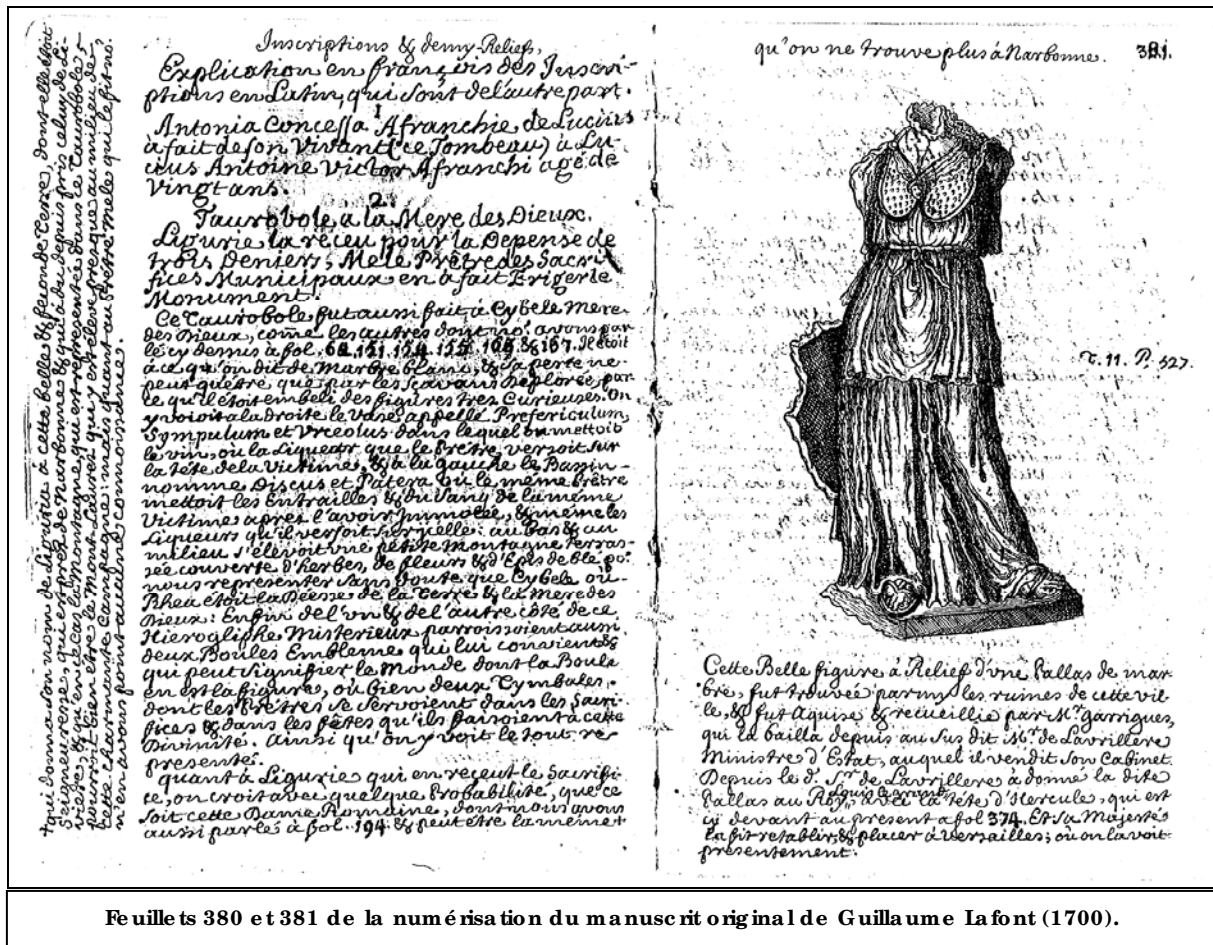 Inscriptions & demy-Reliefs,
Explication en françois des Inscri-
ptions en Latin, qui sont de l'autre part.
1
Antonia Concessa Afranchie de Lucius
à fait de son Vivant (ce Tombeau) à Lu-
cius Antoine Victor Afranchi agé de
Vingt ans.
2.
Taurobole a la Mere des Dieux.
Ligurie la receu pour la Depense de
trois Deniers; Mele Prêtre des Sacri-
fices Municipaux en à fait Eriger le
Monument.
Ce Taurobole fut aussi fait à Cybele Mere
des Dieux, come les autres dont no'. avons par
lé cy dessus à fol. 151. & 167. Il étoit
à ce qu'on dit de Marbre blanc, & sa perte ne
peut qu'etre que par les sçavans deplorée, par
ce qu'il étoit embeli des figures tres Curieuses. On
y voioit a la droite le Vase appellé Prefericulum,
Sympulum et Vrceolus dans lequel on mettoit
le vin, ou la Liqueur que le Prêtre versoit sur
la tête de la Victime, & à la gauche le Bassin
nommé Discus et Patera ou le même Prêtre
mettoit les Entrailles & du Sang de la même
Victime aprez l'avoir Jmmolée, & même les
Liqueurs qu'il versoit sur elle: au bas & au
milieu s'élevoit vne petite Montagne terras-
sée couverte d'herbes, de fleurs & d'Epis de blé po'.
nous representer sans doute que Cybele ou
Rhea étoit la Déesse de la Terre & la Mere des
Dieux: Enfin de l'vn & de l'autre côté de ce
Hierogliphe Misterieux parroissoient aussi
deux Boules Embleme qui lui convient &
qui peut signifier le Monde dont la Boule
en est la figure, ou bien deux Cymbales.
dont les Prêtres se servoient dans les Sacri-
fices & dans les fêtes qu'ils faisoient à cette
Divinité. Ainsi qu'on y voit le tout re
presenté.
quant à Ligurie qui en reçeut le Sacrifi-
ce, on croit avec quelque Probabilité, que ce
soit cette Dame Romaine, dont nous avons
aussi parlé à fol. 194. & peut être la même +
+ qui donna son nom de Liguria à cette belle & feconde Terre, dont elle étoit
Seigneuresse, qui est prez de Narbonne & qui a du depuis pris celuy de Li-
& qu'en ce cas la montagne qui est representée dans ce Taurobole
pourroit bien être le Mont-Laurez qui y est elevé presque au milieu de
cette charmante Campagne: mais quant au Prêtre Mele qui le fit no.
n'en avons point aucune connoissance.
qu'on ne trouve plus à Narbonne. 381.
T. 11. P. 327.
Cette Belle figure à Relief d'vne Pallas de mar
bre, fut trouvée parmy les ruines de cette vil
le, & fut Aquise & recueillie par Mr. Garrigues,
qui la bailla depuis au sus dit Mr. de Lavrillere
Ministre d'Estat, auquel il vendit son Cabinet.
Depuis le d. Sr. de Lavrillere à donné la dite
Louis le grand
Pallas au Roy, avec la tête d'Hercule, qui est
cy devant au present a fol 374. Et Sa Majesté
la fit retablir, & placer à Versailles; où on la voit
presentement.
Feuillets 380 et 381 de la numérisation du manuscrit original de Guillaume Lafont (1700).